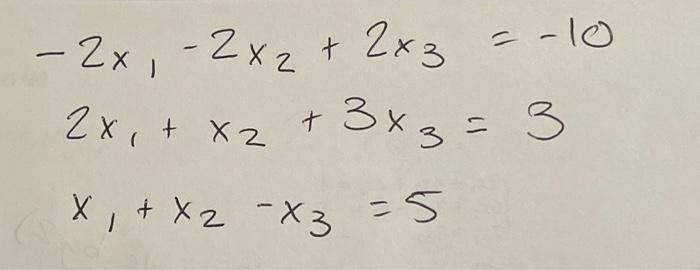 -2x₁ -2x₂ + 2x₃ = -10
2x₁ + x₂ + 3x₃ = 3
x₁ + x₂ -x₃ = 5